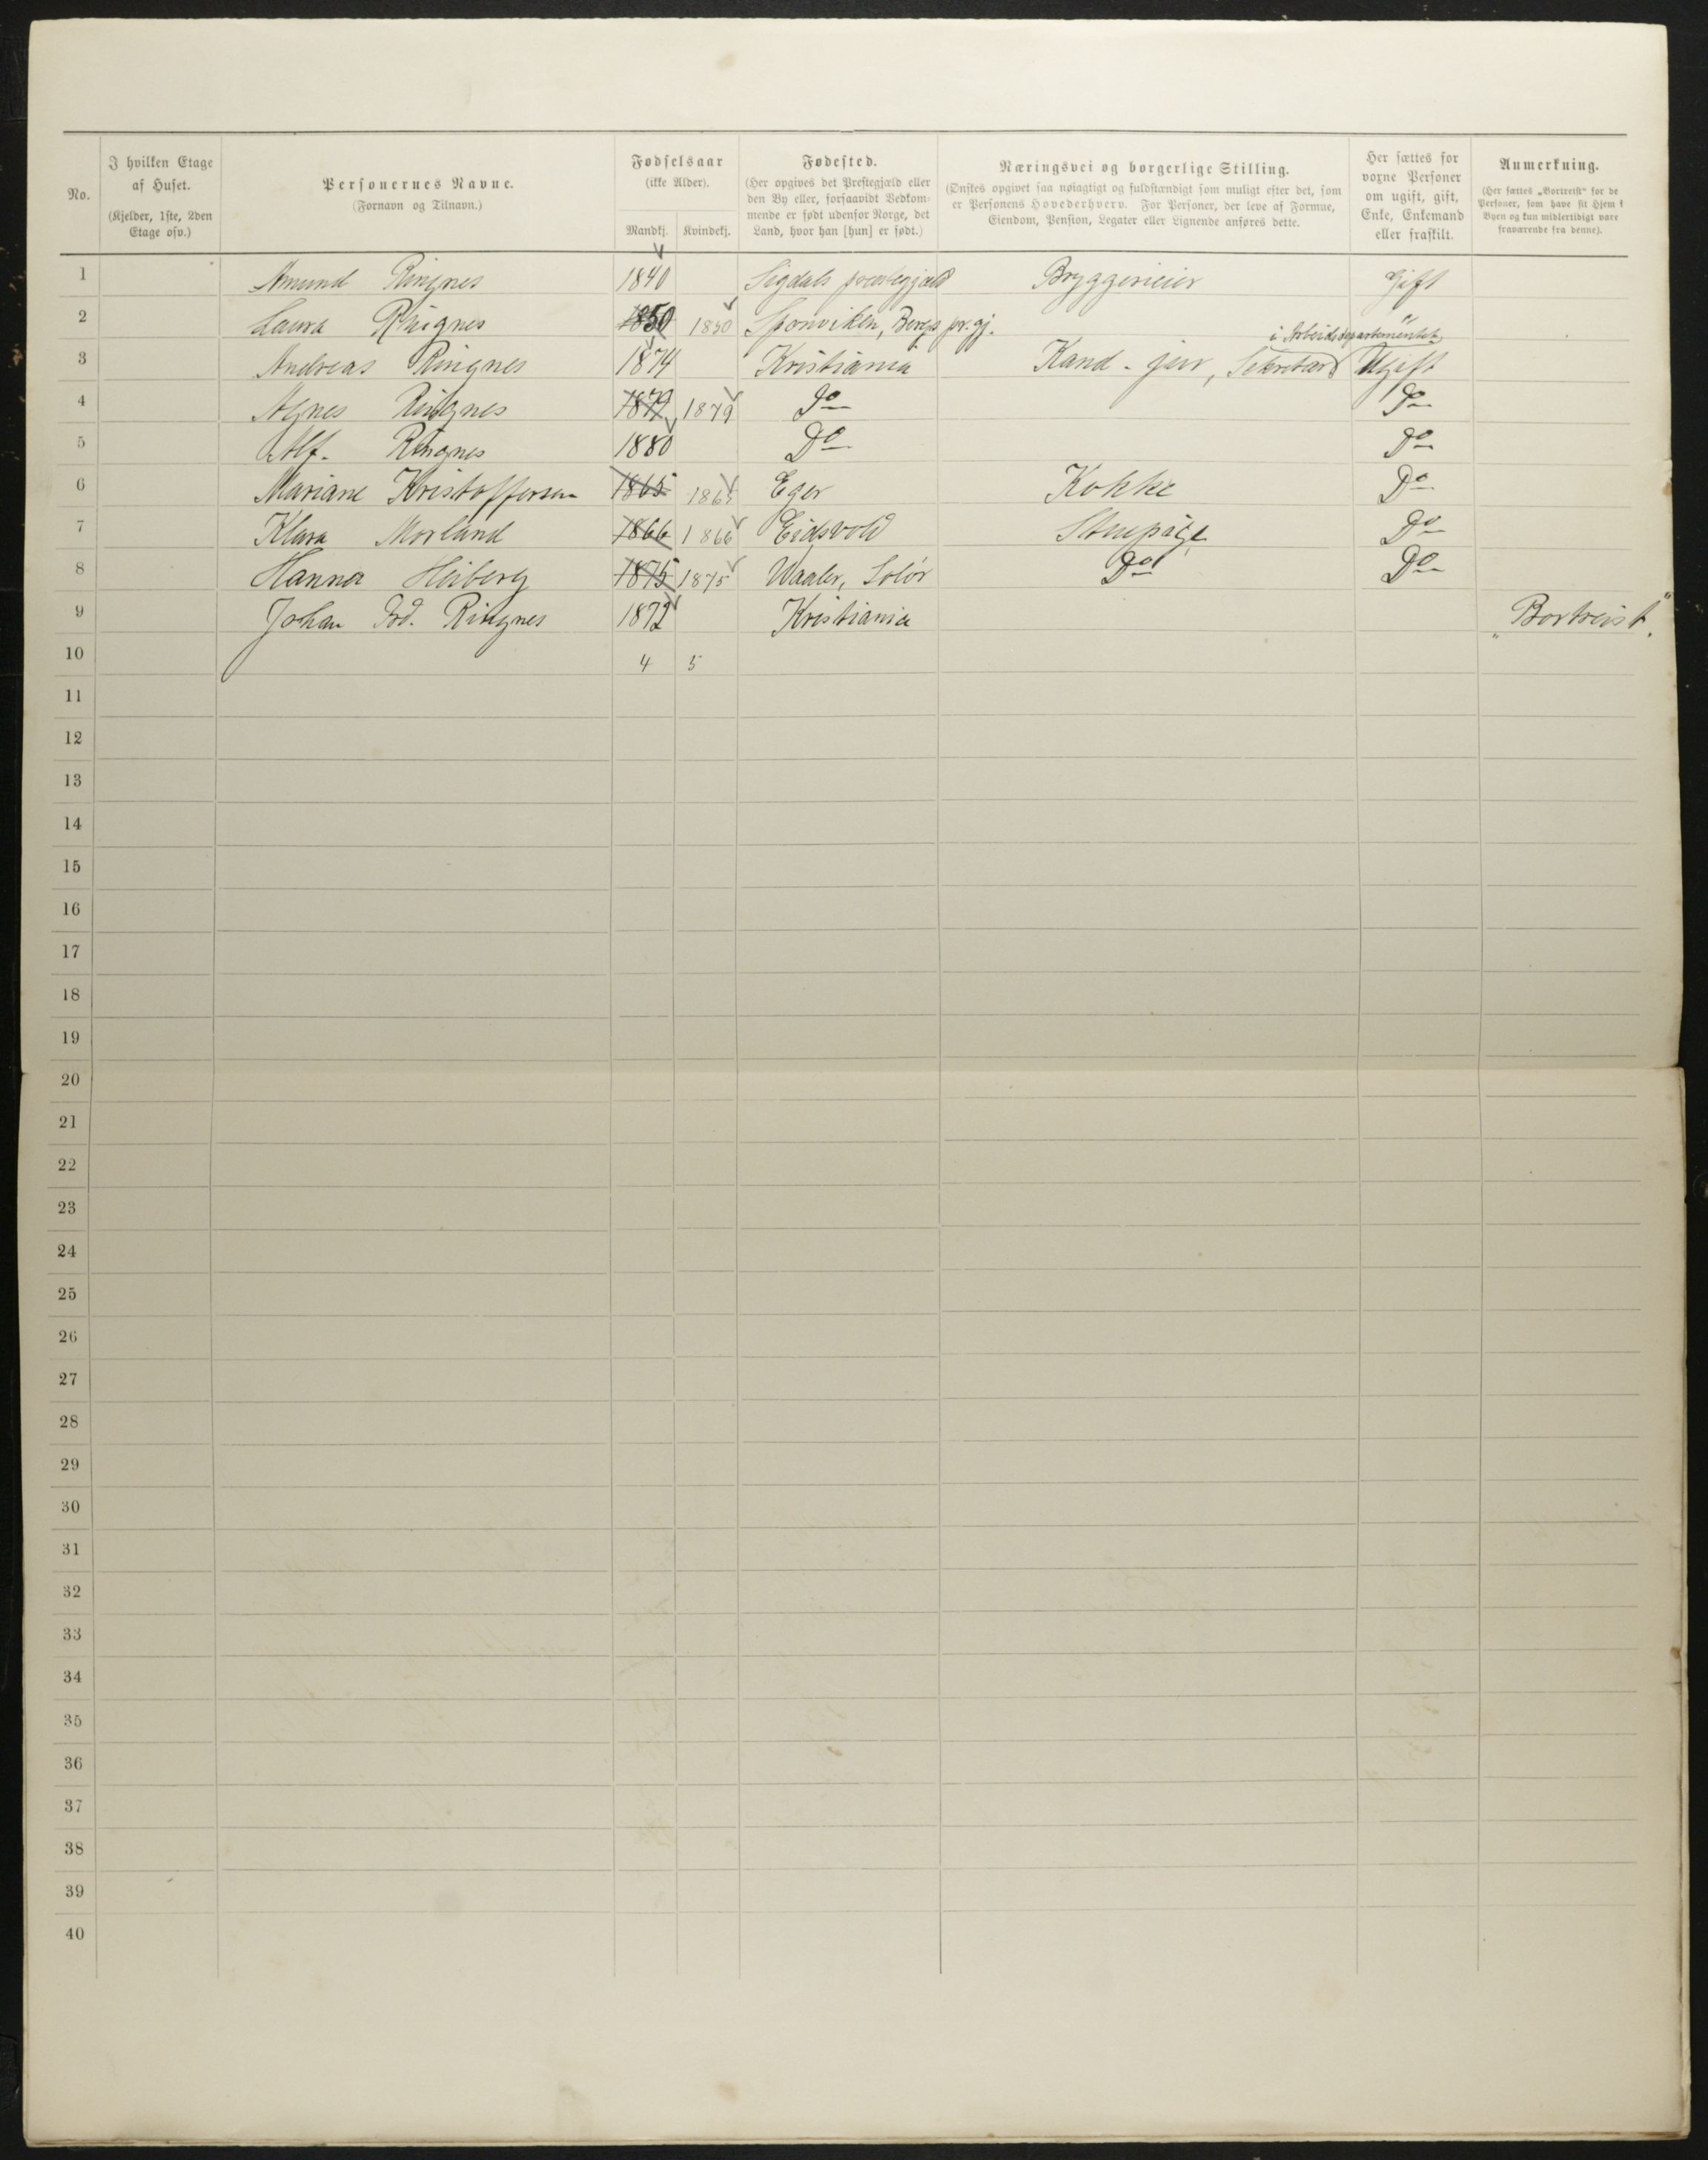 No.
I hvilken Etage af Huset.
(Kjelder, 1ste, 2den Etage osv.)
Personernes Navne.
(Fornavn og Tilnavn.)
Fødselsaar
(ikke Alder).
Mandkj. Kvindekj.
Fødested.
(Her opgives det Prestegjæld eller den By eller, forsaavidt Vedkommende er født udenfor Norge, det Land, hvor han [hun] er født.)
Næringsvei og borgerlige Stilling.
(Ønskes opgivet saa nøiagtigt og fuldstændigt som muligt efter det, som er Personens Hovederhverv. For Personer, der leve af Formue, Eiendom, Pension, Legater eller Lignende anføres dette.
Her sættes for voxne Personer om ugift, gift, Enke, Enkemand eller fraskilt.
Anmerkning.
(Her sættes „Bortreist" for de Personer, som have sit Hjem i Byen og kun midlertidigt vare fraværende fra denne).
1 Amund Ringnes 1840 Sigdals prestegjæld Bryggerieier Gift
2 Laura Ringnes 1850 1850 Sponviken, Bergs pr.gj. "
i Arbeidsdepartementet
3 Andreas Ringnes 1874 Kristiania Kand. jur, Sekretær Ugift
4 Agnes Ringnes 1879 1879 Do Do
5 Alf. Ringnes 1880 Do Do
6 Mariane Kristoffersen 1865 1865 Eger Kokke Do
7 Klara Morland 1866 1866 Eidsvold Stuepige Do
8 Hanna Heiberg 1875 1875 Waaler, Solør Do Do
9 Johan Fod. Ringnes 1872 Kristiania „Bortreist"
10 4 5
11
12
13
14
15
16
17
18
19
20
21
22
23
24
25
26
27
28
29
30
31
32
33
34
35
36
37
38
39
40